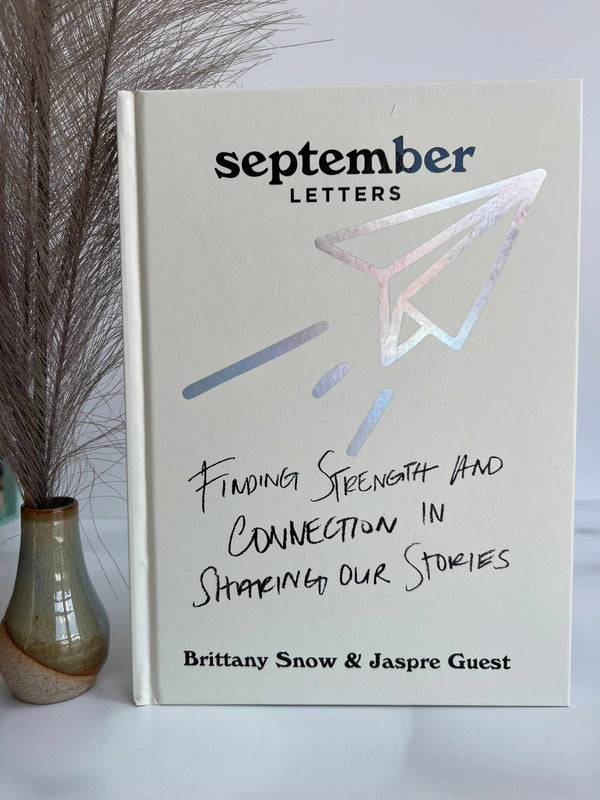 september
LETTERS
FINDING STRENGTH AND
CONNECTION IN
SHARING OUR STORIES
Brittany Snow & Jaspre Guest